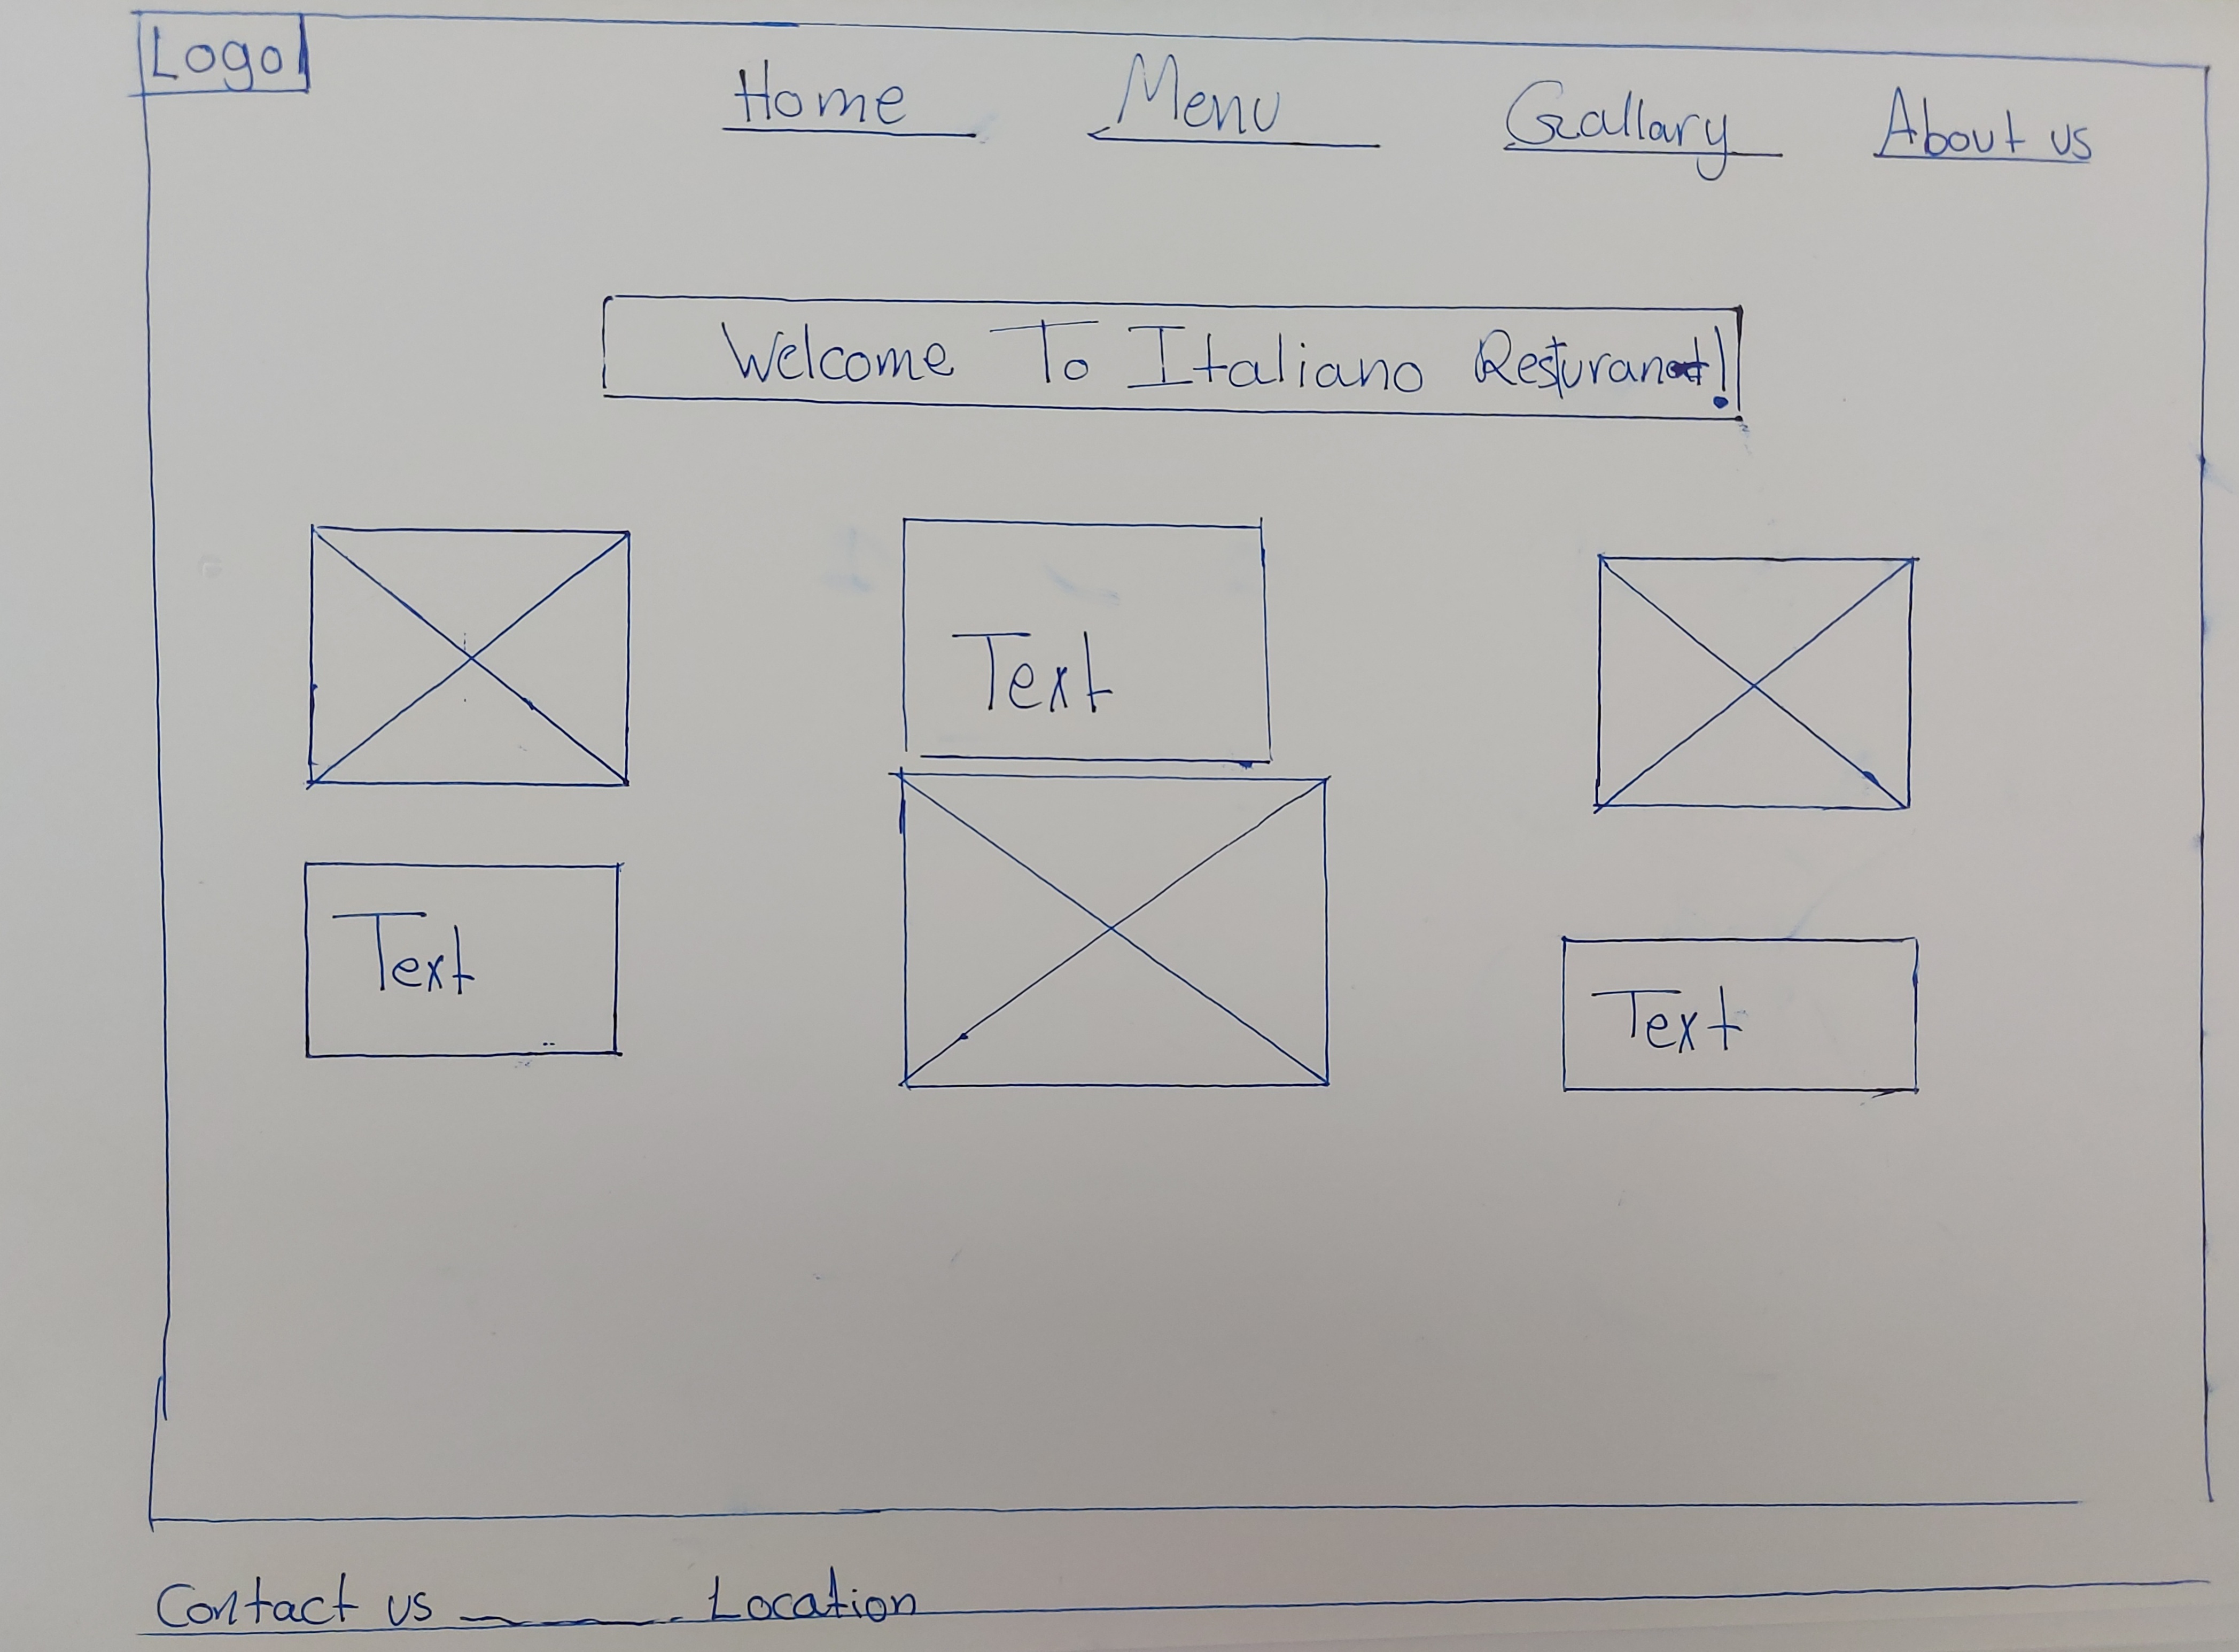 Logo
Home Menu Gallary About us
Welcome To Italiano Resturant!
Text
Text
Text
Contact us Location